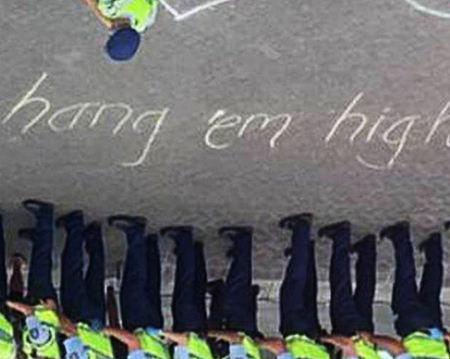 hang 'em high